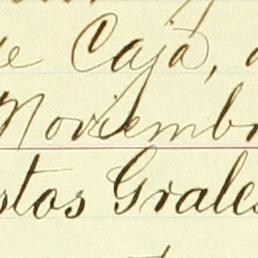 e Caja,
Noviembr
stos Grales